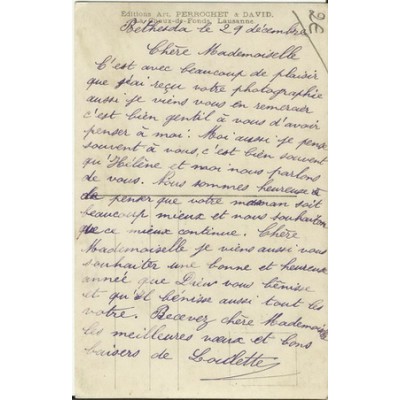 Editions Art. PERROCHET & DAVID.
La Chaux-de-Fonds, Lausanne
Bethesda le 29 décembre
Chère Mademoiselle
C'est avec beaucoup de plaisir
que j'ai reçu votre photographie
aussi je viens vous en remercier
c'est bien gentil à vous d'avoir
penser à moi. Moi aussi je pense
souvent à vous, c'est bien souvent
qu'Hélène et moi nous parlons
de vous. Nous sommes heureuse
de penser que votre maman soit
beaucoup mieux et nous souhaiton
que ce mieux continue. Chère
Mademoiselle je viens aussi vous
souhaiter une bonne et heureuse
année que Dieu vous bénisse
et qu'il bénisse aussi tout les
votre. Recevez chère Mademoise
les meilleures vœux et bons
baisers de Loulette